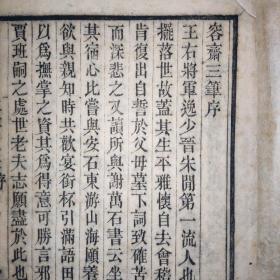 容齋三筆序
王右將軍逸少晉宋閒第一流人也
擺落世故蓋其生平雅懷自去會稽
肯復出自誓於父母墓下詞致確
而深悲之又讀所與謝萬石書云坐
其宿心比嘗與安石東游山海頤養
欲與親知時共歡宴銜杯引滿語田
以爲撫掌之資其爲得意可勝言邪
賈班嗣之處世老夫志願盡於此也
序